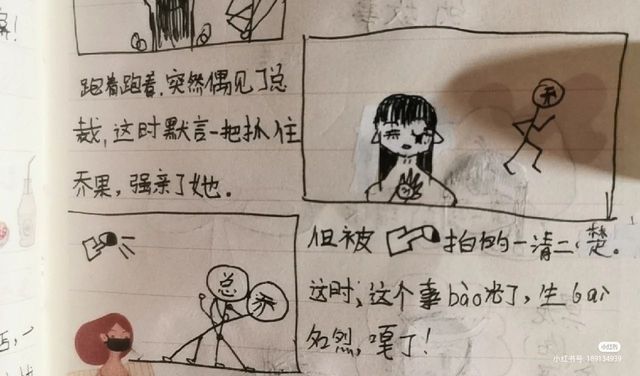 跑着跑着,突然偶见了总
裁,这时默言一把抓住
乔果,强亲了她。
乔
总
乔
但被
拍的一清二楚。
这时,这个事bào光了,生bai
名烈,嘎了!
小红书
小红书号:189134939